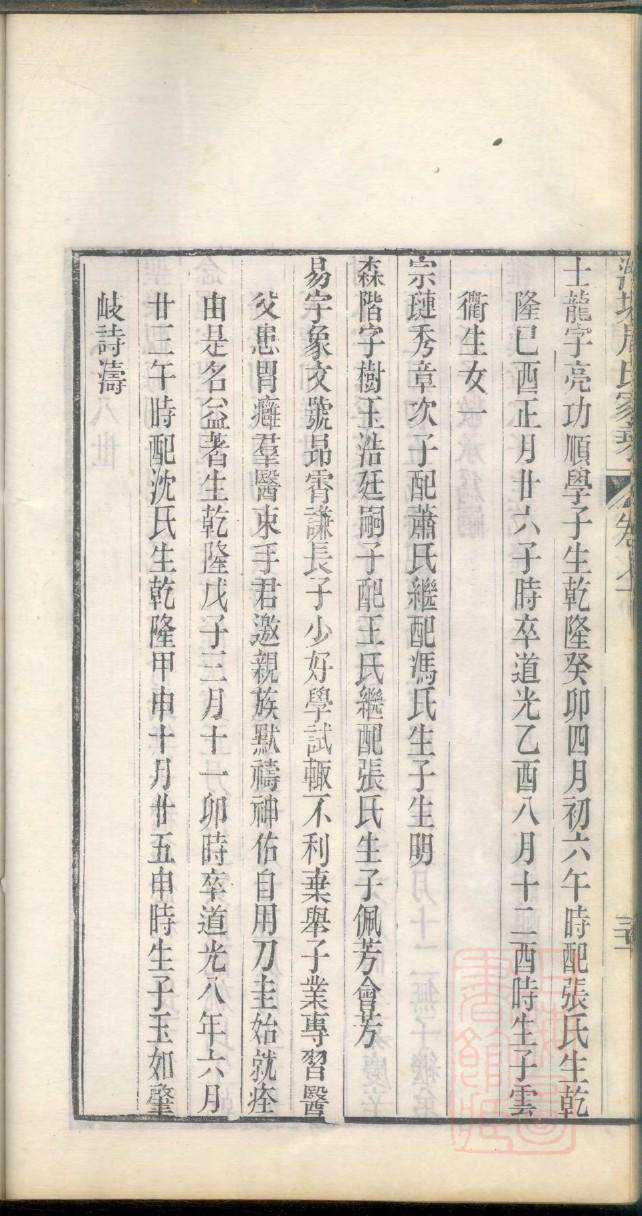 周氏家乘
士龍字亮功順學子生乾隆癸卯四月初六午時配張氏生乾
隆己酉正月廿六子時卒道光乙酉八月十二酉時生子雲
衢生女一
宗璉秀章次子配蕭氏繼配馮氏生子生明
森階字樹玉浩廷嗣子配王氏繼配張氏生子佩芳會芳
易宇象文號昴霄謙長子少好學試輒不利棄舉子業專習醫
父患胃癰羣醫束手君邀親族默禱神佑自用刀圭始就痊
由是名益著生乾隆戊子三月十一卯時卒道光八年六月
廿三午時配沈氏生乾隆甲申十月廿五申時生子玉如肇
岐詩濤